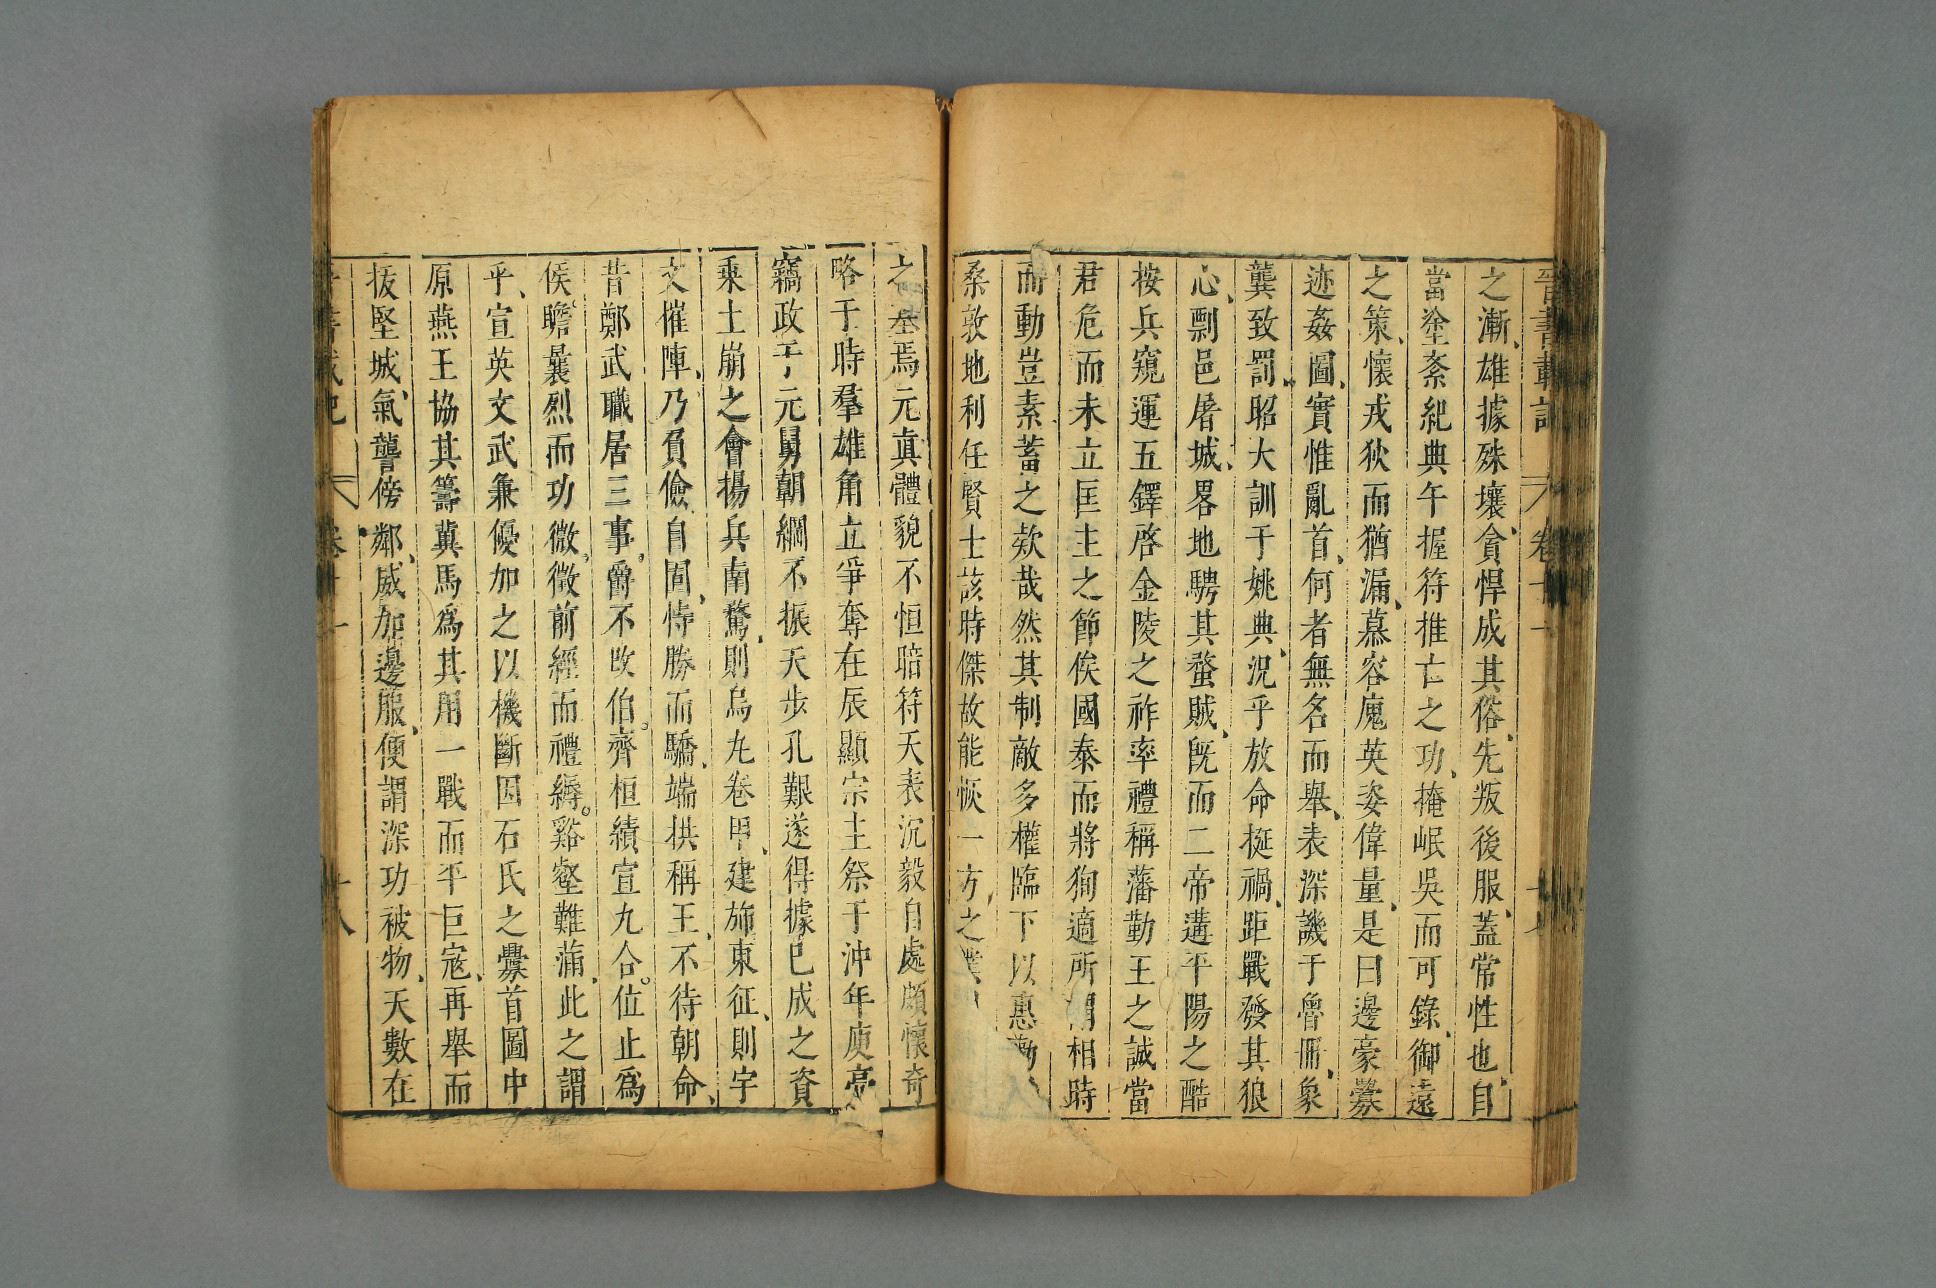 晉書載記 卷十一 十七
之漸、雄據殊壤、貪悍成其俗、先叛後服、蓋常性也、自
當塗紊紀、典午握符、推亡之功、掩岷吳而可錄、御遠
之策、懷戎狄而猶漏、慕容廆英姿偉量、是曰邊豪、釁
迹姦圖、實惟亂首、何者、無名而舉、表深譏于魯冊、象
龔致罰、昭大訓于姚典、況乎放命挻禍、距戰發其狼
心、剽邑屠城、畧地騁其蝥賊、旣而二帝遘平陽之酷
按兵窺運五鐸啓金陵之祚率禮稱藩勤王之誠當
君危而未立匡主之節俟國泰而將徇適所謂相時
而動豈素蓄之欵哉然其制敵多權臨下以惠勸
桑敦地利任賢士該時傑故能恢一方之業
之基焉元眞體貌不恒暗符天表沉毅自處頗懷奇
略于時羣雄角立爭奪在辰顯宗主祭于沖年庾亮
竊政于元舅朝綱不振天步孔艱遂得據已成之資
乗土崩之會揚兵南騖、則烏丸卷甲、建旆東征、則宇
文摧陣、乃負儉自固、恃勝而驕、端拱稱王、不待朝命、
昔鄭武職居三事、爵不改伯。齊桓績宣九合。位止爲
侯。瞻曩烈而功微、徵前經而禮縟。谿壑難滿、此之謂
乎、宣英文武兼優加之以機斷因石氏之釁首圖中
原燕王協其籌冀馬爲其用一戰而平巨寇、再舉而
拔堅城、氣讋傍鄰、威加邊服、便謂深功被物、天數在
卷十一 十八